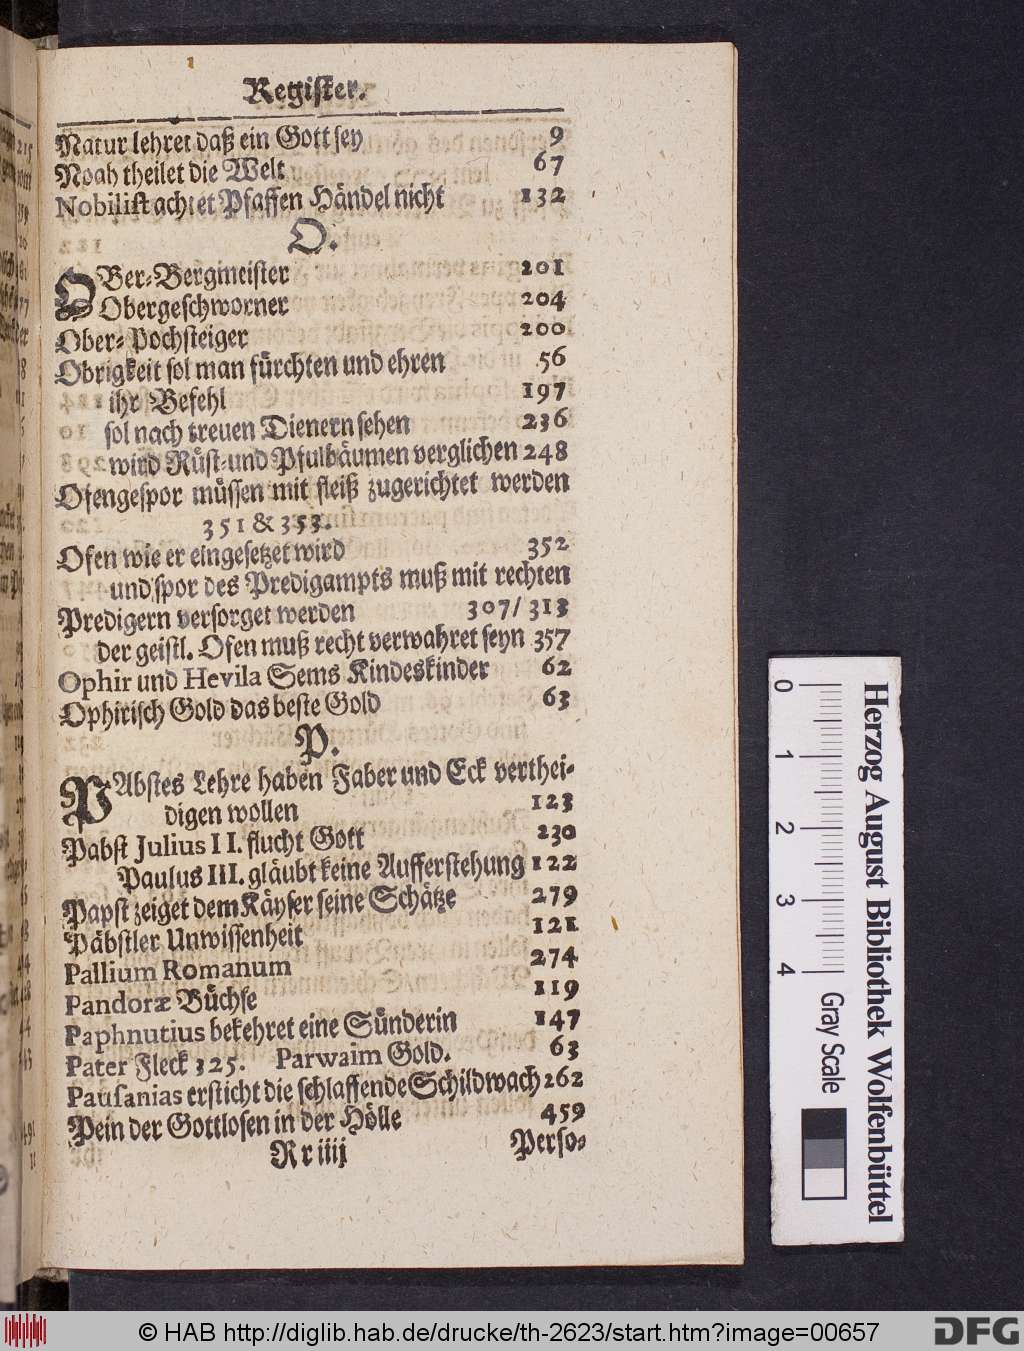 Register.
Natur lehret daß ein Gott sey 9
Noah theilet die Welt 67
Nobilist achtet Pfaffen Händel nicht 132
O.
OBer-Bergmeister 201
Obergeschworner 204
Ober-Pochsteiger 200
Obrigkeit sol man fürchten und ehren 56
ihr Befehl 197
sol nach treuen Dienern sehen 236
wird Rüst-und Pfulbäumen verglichen 248
Ofengespor müssen mit fleiß zugerichtet werden
351 & 353.
Ofen wie er eingesetzet wird 352
und spor des Predigampts muß mit rechten
Predigern versorget werden 307/ 313
der geistl. Ofen muß recht verwahret seyn 357
Ophir und Hevila Sems Kindeskinder 62
Ophirisch Gold das beste Gold 63
P.
PAbstes Lehre haben Faber und Eck verthei-
digen wollen 123
Pabst Julius II. flucht Gott 230
Paulus III. gläubt keine Aufferstehung 122
Papst zeiget dem Käyser seine Schätze 279
Päbstler Unwissenheit 121
Pallium Romanum 274
Pandoræ Büchse 119
Paphnutius bekehret eine Sünderin 147
Pater Fleck 325. Parwaim Gold. 63
Pausanias ersticht die schlaffende Schildwach 262
Pein der Gottlosen in der Hölle 459
Rr iiij Perso-
0 1 2 3 4
Gray Scale
Herzog August Bibliothek Wolfenbüttel
© HAB http://diglib.hab.de/drucke/th-2623/start.htm?image=00657
DFG